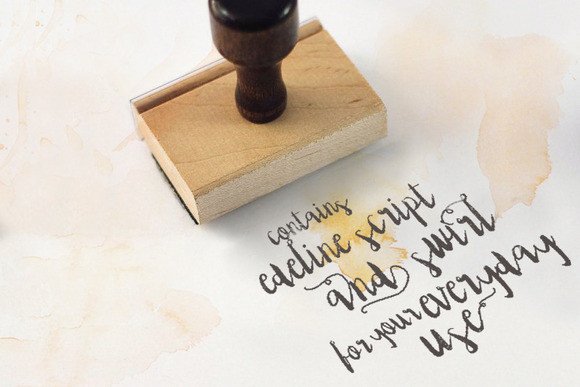 contains
edeline script
and swirl
for your everyday
use